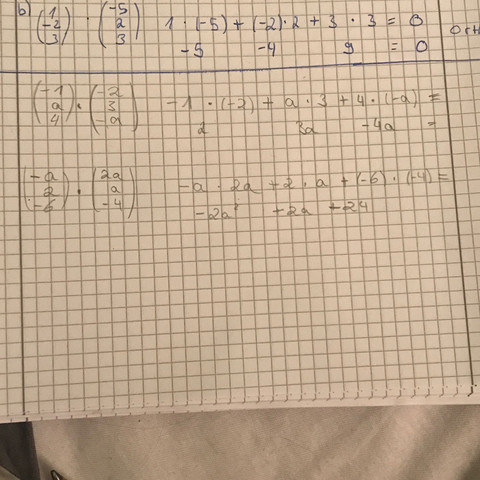 b) (1 -2 3) · (-5 2 3) 1 · (-5) + (-2) · 2 + 3 · 3 = 0
-5 -4 9 = 0
(-1 a 4) · (-2 3 -a) -1 · (-2) + a · 3 + 4 · (-a) =
2 3a -4a =
(-a 2 -6) · (2a a -4) -a · 2a + 2 · a + (-6) · (-4) =
-2a² +2a +24